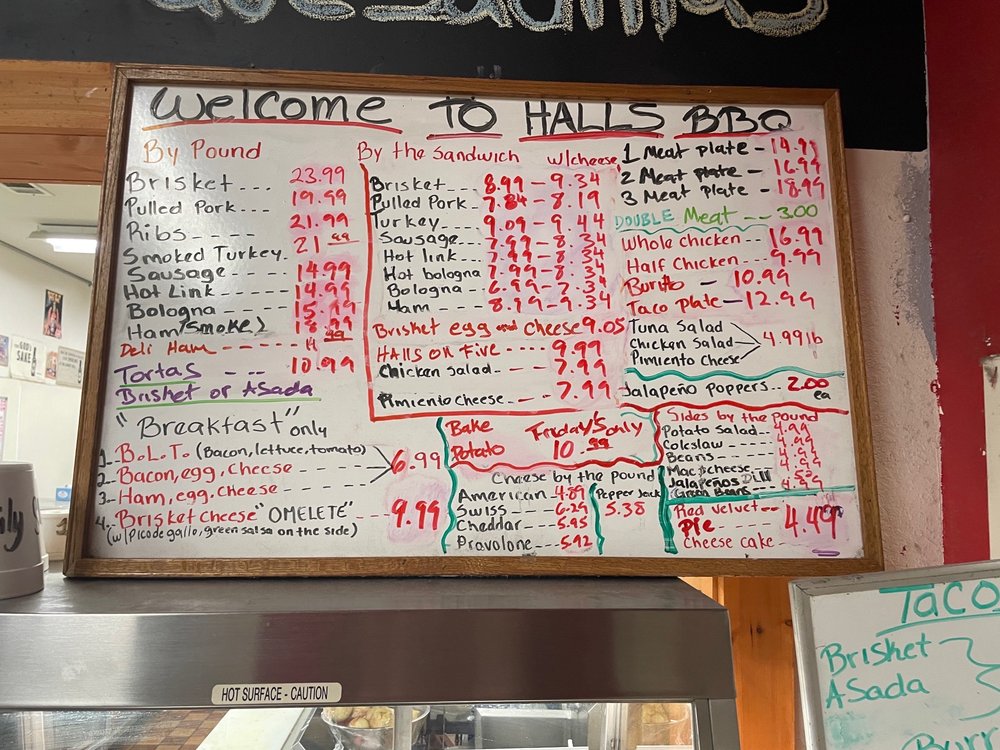 Welcome TO HALLS BBQ
By Pound
Brisket.... 23.99
Pulled Pork. 19.99
Ribs ---- 21.99
Smoked Turkey. 21 99
Sausage---- 14.99
Hot Link ---- 14.99
Bologna ---- 15.99
Ham (Smoke) 18.99
Deli Ham --- 11 99
Tortas --- 10.99
Brisket or ASada
"Breakfast" only
1- B.L.T. (Bacon, lettuce, tomato)
2- Bacon, egg, cheese
3- Ham, egg, cheese
6.99
4. Brisket cheese "OMELETE" 9.99
(w/pico de gallo, green salsa on the side)
By the Sandwich w/cheese
Brisket--- 8.99 - 9.34
Pulled Pork- 7.84 - 8.19
Turkey--- 9.09 - 9.44
Sausage--- 7.99 - 8.34
Hot link--- 7.99 - 8.34
Hot bologna 7.99 - 8.34
Bologna --- 6.99 - 7.34
Ham---- 8.99 - 9.34
Brisket egg and cheese 9.05
HAlls on Five ---- 9.99
Chicken Salad--- 7.99
Pimiento cheese--- 7.99
Bake Potato Friday's only 10.99
Cheese by the pound
American 4.89
Swiss --- 6.29
Cheddar--- 5.95
Provalone--- 5.92
Pepper Jack
5.38
1 Meat plate - 14.99
2 Meat plate - 16.99
3 Meat plate - 18.99
DOUBLE Meat --- 3.00
Whole chicken-- 16.99
Half Chicken-- 9.99
Burrito - 10.99
Taco Plate - 12.99
Tuna Salad
Chicken Salad
Pimiento Cheese
4.99 lb
Jalapeño Poppers.. 2.00 ea
Sides by the pound
Potato Salad-- 4.99
Coleslaw--- 4.99
Beans --- 4.99
Mac & cheese 4.99
Jalapeños
Green Beans-- 4.99
Red velvet--
PIe
cheese cake
4.49
HOT SURFACE - CAUTION
Taco
Brisket
ASada